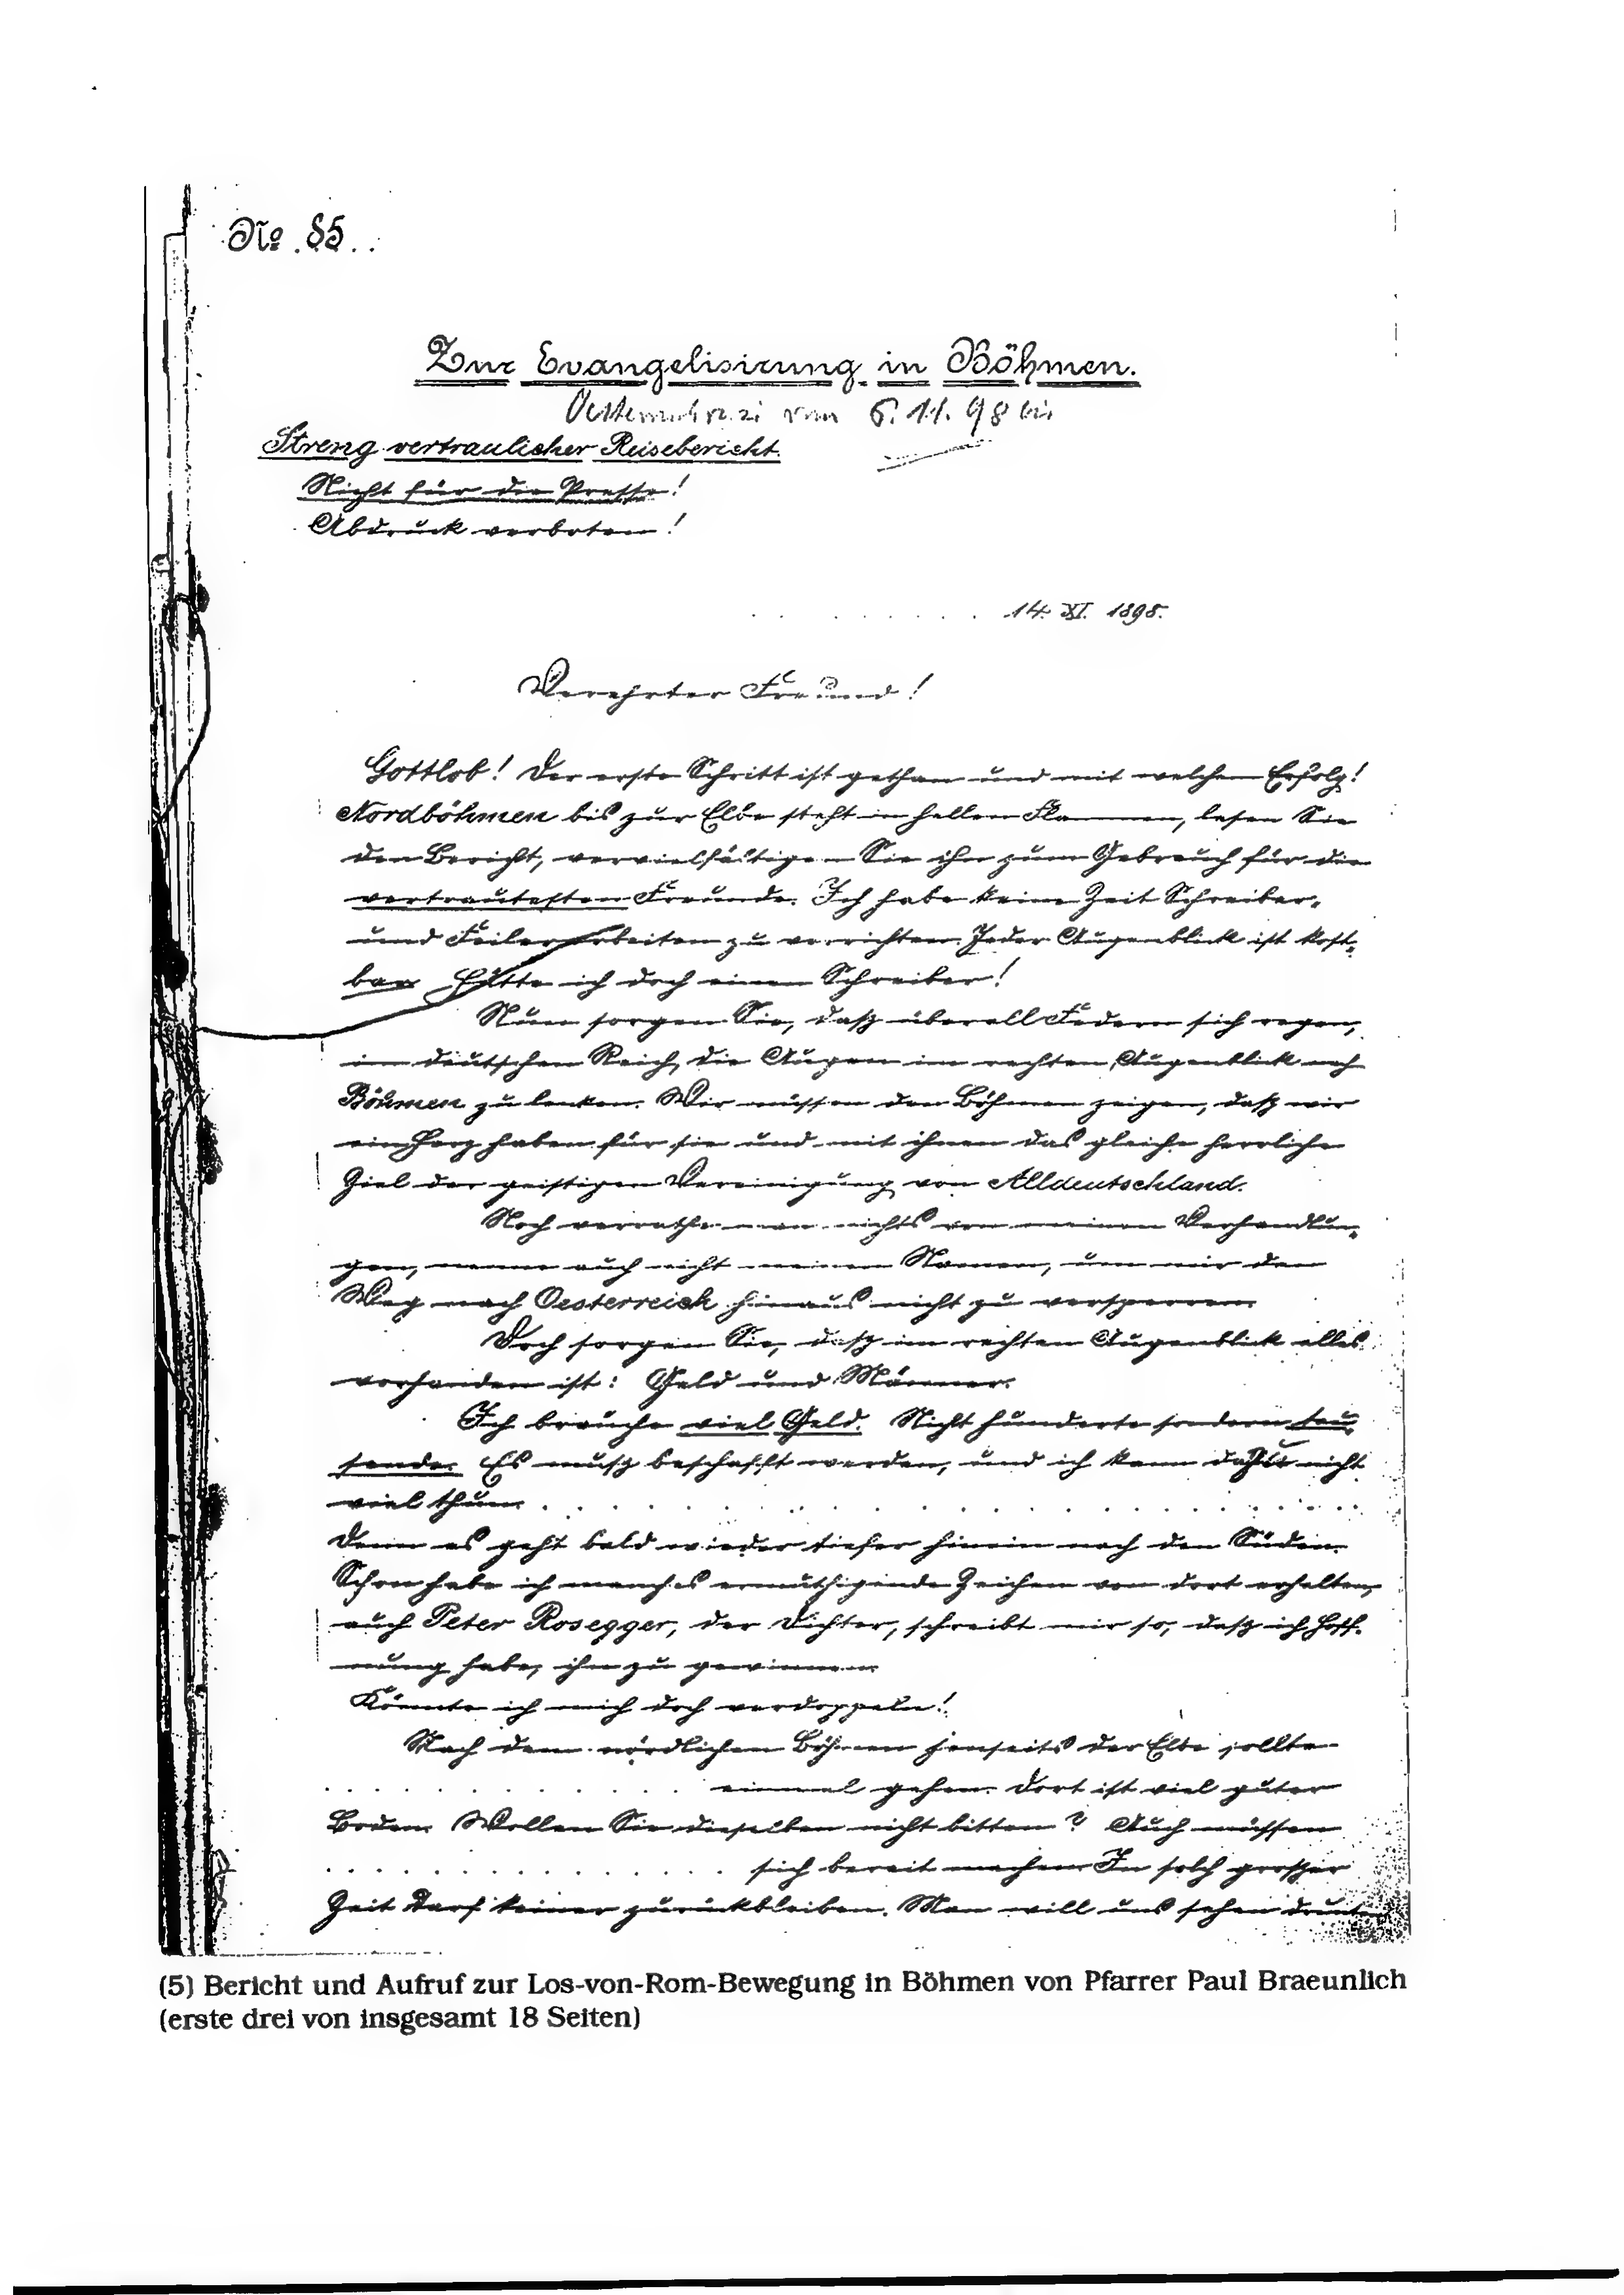 No. 85.
Zur Evangelisirung in Böhmen.
vom 6.11.98
Streng vertraulicher Reisebericht.
Nicht für die Presse!
Abdruck verboten!
. . . . . . . . . 14. XI. 1898.
Verehrter Freund!
Gottlob! Der erste Schritt ist gethan und mit welchem Erfolg!
Nordböhmen bis zur Elbe steht in hellen Flammen, lesen Sie
den Bericht, vervielfältigen Sie ihn zum Gebrauch für die
vertrautesten Freunde. Ich habe keine Zeit Schreiber-
und Feilerarbeiten zu verrichten. Jeder Augenblick ist kost-
bar. Hätte ich doch einen Schreiber!
Nun sorgen Sie, daß überall Federn sich regen,
im deutschen Reich, die Augen im rechten Augenblick nach
Böhmen zu lenken. Wir müssen den Böhmen zeigen, daß wir
ein Herz haben für sie und mit ihnen das gleiche herrliche
Ziel der geistigen Vereinigung von Alldeutschland.
Noch verrathe man nichts von meinen Verhandlun-
gen, nenne auch nicht meinen Namen, um mir den
Weg nach Oesterreich hinaus nicht zu versperren.
Doch sorgen Sie, daß im rechten Augenblick alles
vorhanden ist: Geld und Männer.
Ich brauche viel Geld. Nicht hunderte sondern tau-
sende. Es muß beschafft werden, und ich kann dafür nicht
viel thun . . . . . . . . . . . . . . .
Denn es geht bald wieder tiefer hinein nach den Süden.
Schon habe ich manches ermuthigende Zeichen von dort erhalten,
auch Peter Rosegger, der Dichter, schreibt mir so, daß ich Hoff-
nung habe, ihn zu gewinnen.
Könnte ich mich doch verdoppeln!
Nach dem nördlichen Böhmen jenseits der Elbe sollte
. . . . . . . . . . . . . . . einmal gehen. Dort ist viel guter
Boden. Wollen Sie dieselben nicht bitten? Auch müssen
. . . . . . . . . . . . . . . . sich bereit machen. In solch großer
Zeit darf keiner zurückbleiben. Man will uns sehen drunten
(5) Bericht und Aufruf zur Los-von-Rom-Bewegung in Böhmen von Pfarrer Paul Braeunlich
(erste drei von insgesamt 18 Seiten)